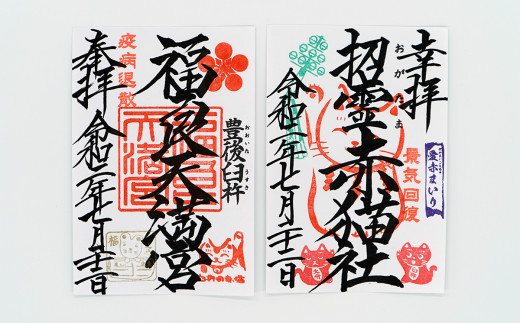 幸拝
愛赤まいり
景気回復
おがたま
招霊赤猫社
令和二年七月二十一日
豊後臼杵
おおいた うすき
福良天満宮
疫病退散
奉拝
令和二年七月二十一日
福